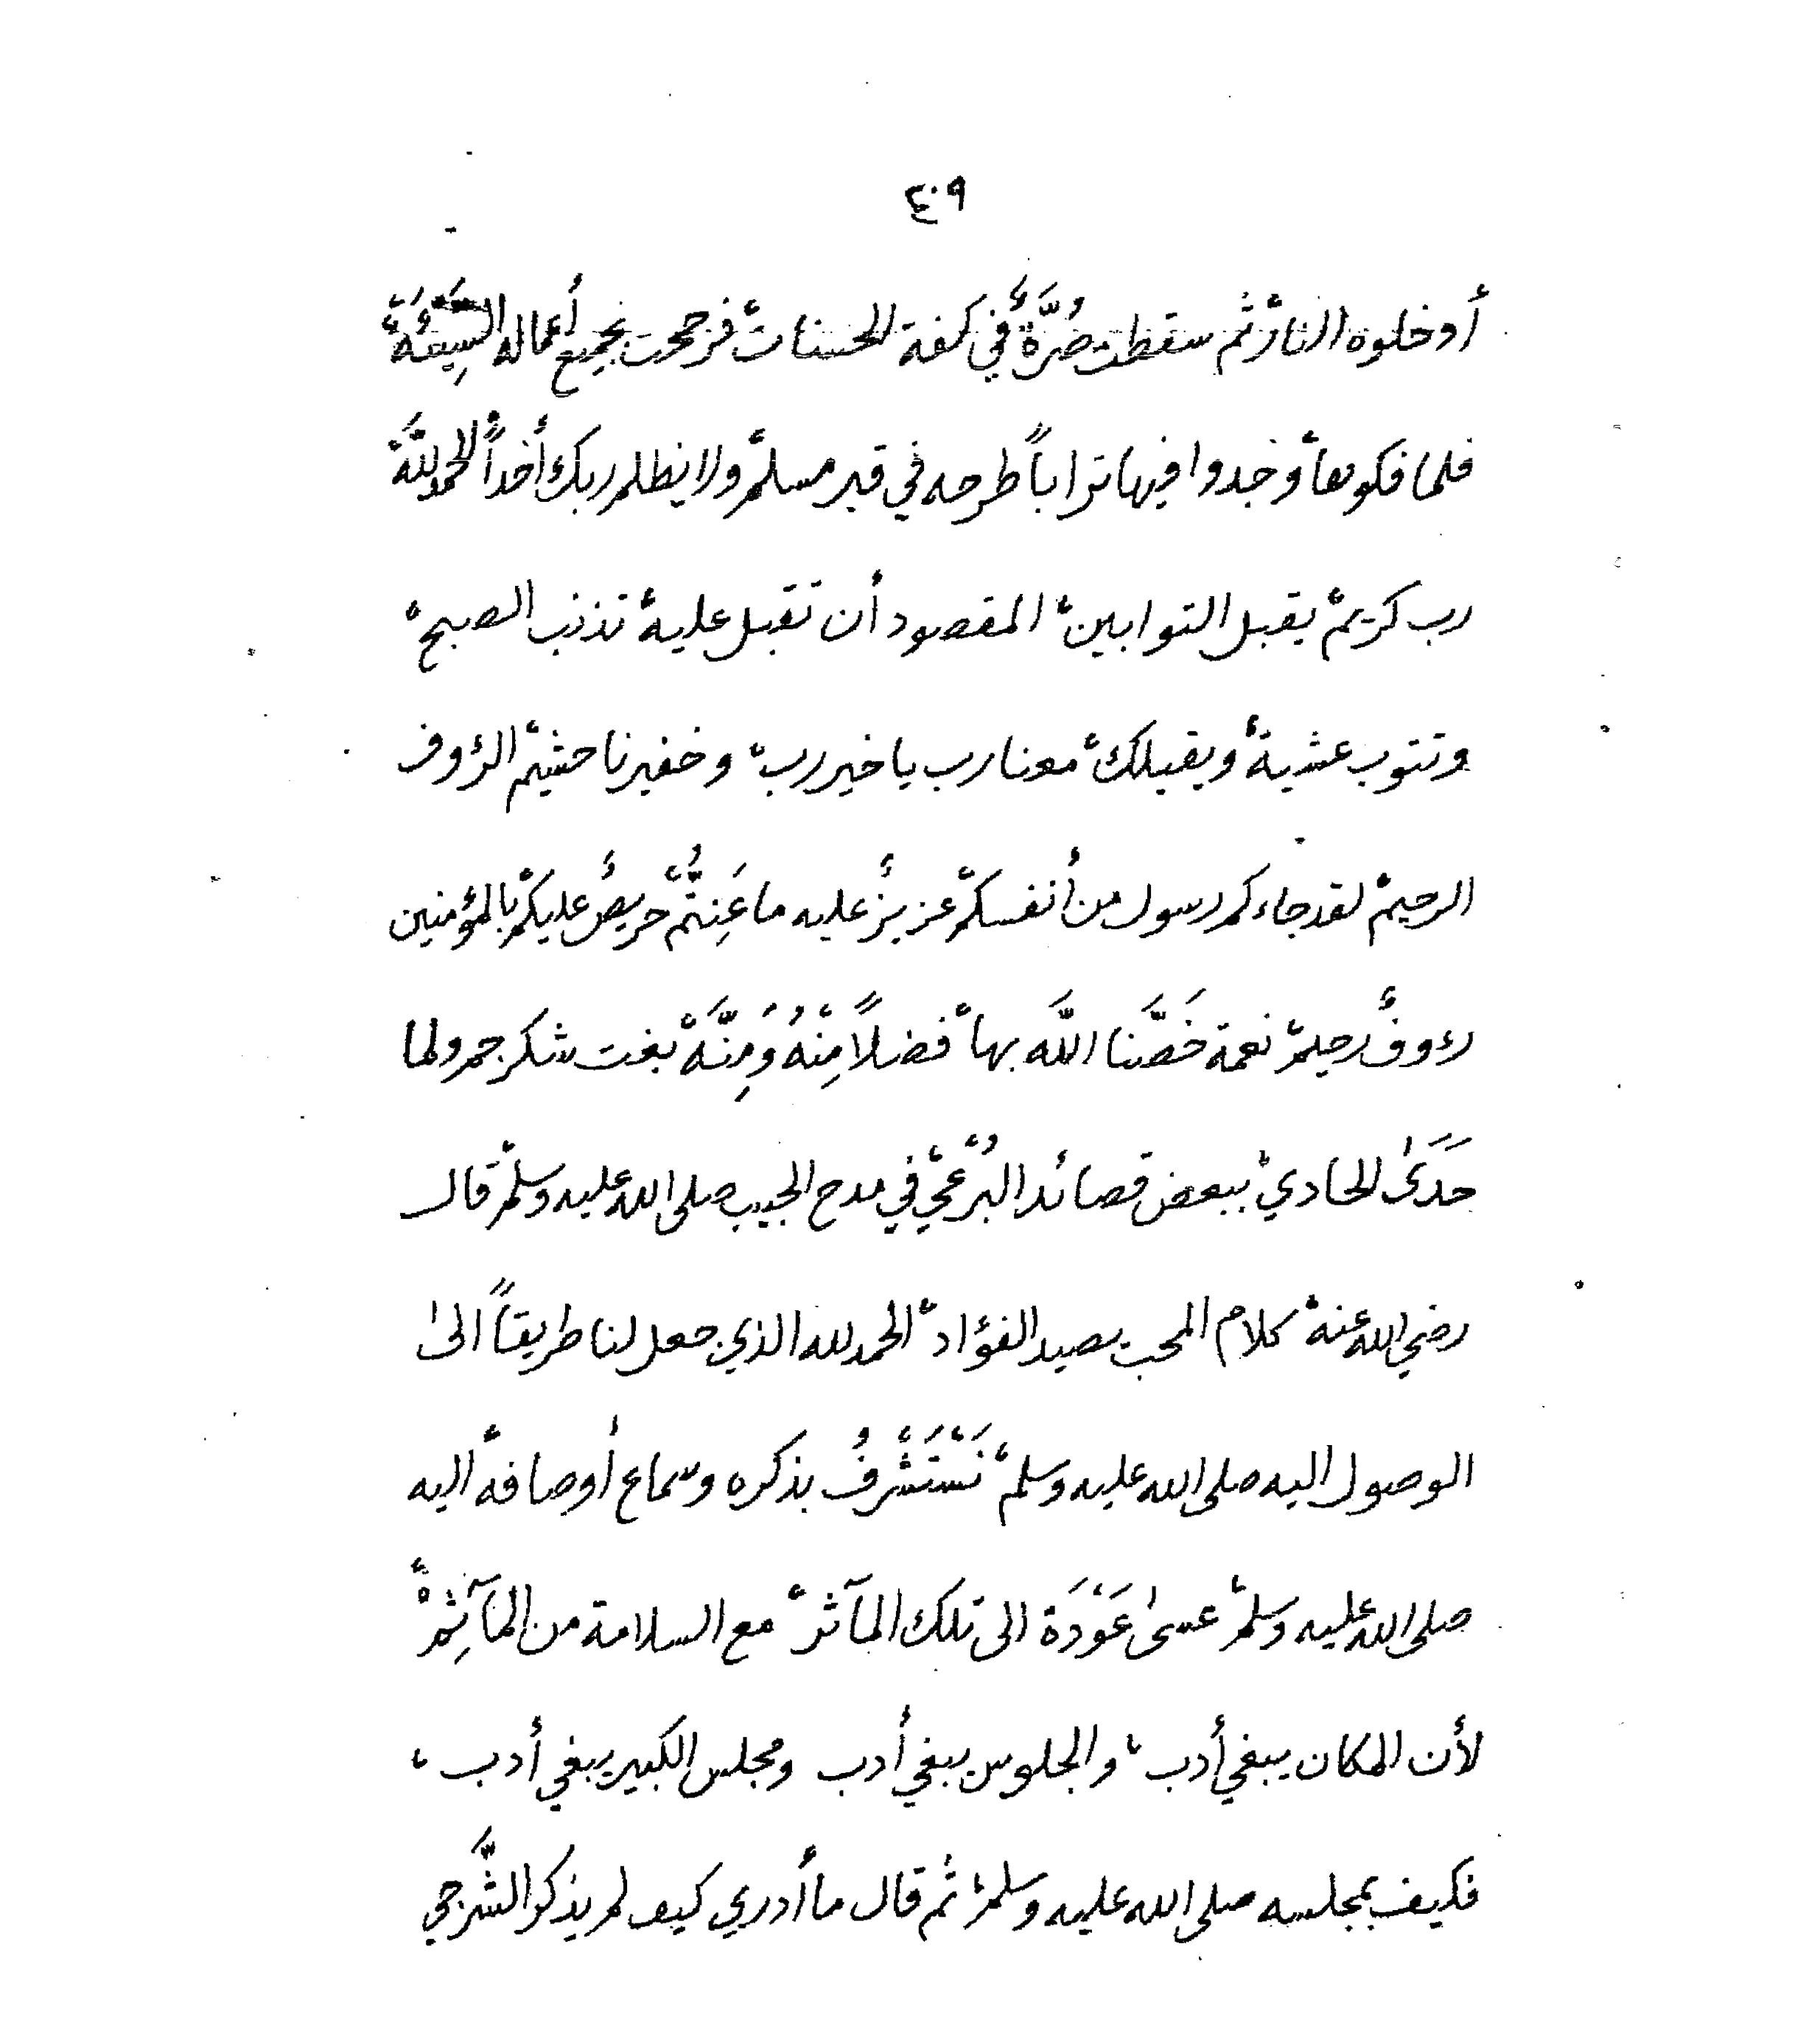 ٤٠٩
أدخلوه النار، ثم سقطت صُرَّةٌ في كفة الحسنات، فرجحت بجميع أعماله السَّيِّئَة،
فلما فكوها، وجدوا فيها تراباً طرحه في قبر مسلم، ولا يظلم ربك أحداً، الحمد لله،
رب كريم، يقبل التوابين، المقصود أن تقبل عليه، تذنب الصبح،
وتتوب عشية، ويقبلك، معنا رب يا خير رب، وخفيرنا حشيم، الرؤوف
الرحيم، لقد جاءكم رسول من أنفسكم، عزيزٌ عليه ما عَنِتُّمْ، حريصٌ عليكم، بالمؤمنين
رءوفٌ رحيم، نعمة خَصَّنا اللَّه بها، فضلاً مِنْهُ وَمِنَّهْ، بغت شكر جم، ولما
حَدَىٰ الحادي، ببعض قصائد البُرَعي، في مدح الحبيب صلى الله عليه وسلم، قال
رضي الله عنه، كلام المحب يصيد الفؤاد، الحمد لله الذي جعل لنا طريقاً الىٰ
الوصول اليه صلى الله عليه وسلم، نَسْتَشْرِفُ بذكره وسماع أوصافه، اليه
صلى الله عليه وسلم، عسىٰ عَوْدَة الى تلك المآثر، مع السلامة من المَآثِمْ،
لأن المكان يبغي أدب، والجلوس يبغي أدب ومجلس الكبير يبغي أدب،
فكيف بمجلسه صلى الله عليه وسلم، ثم قال ما أدري كيف لم يذكر الشَّرجي